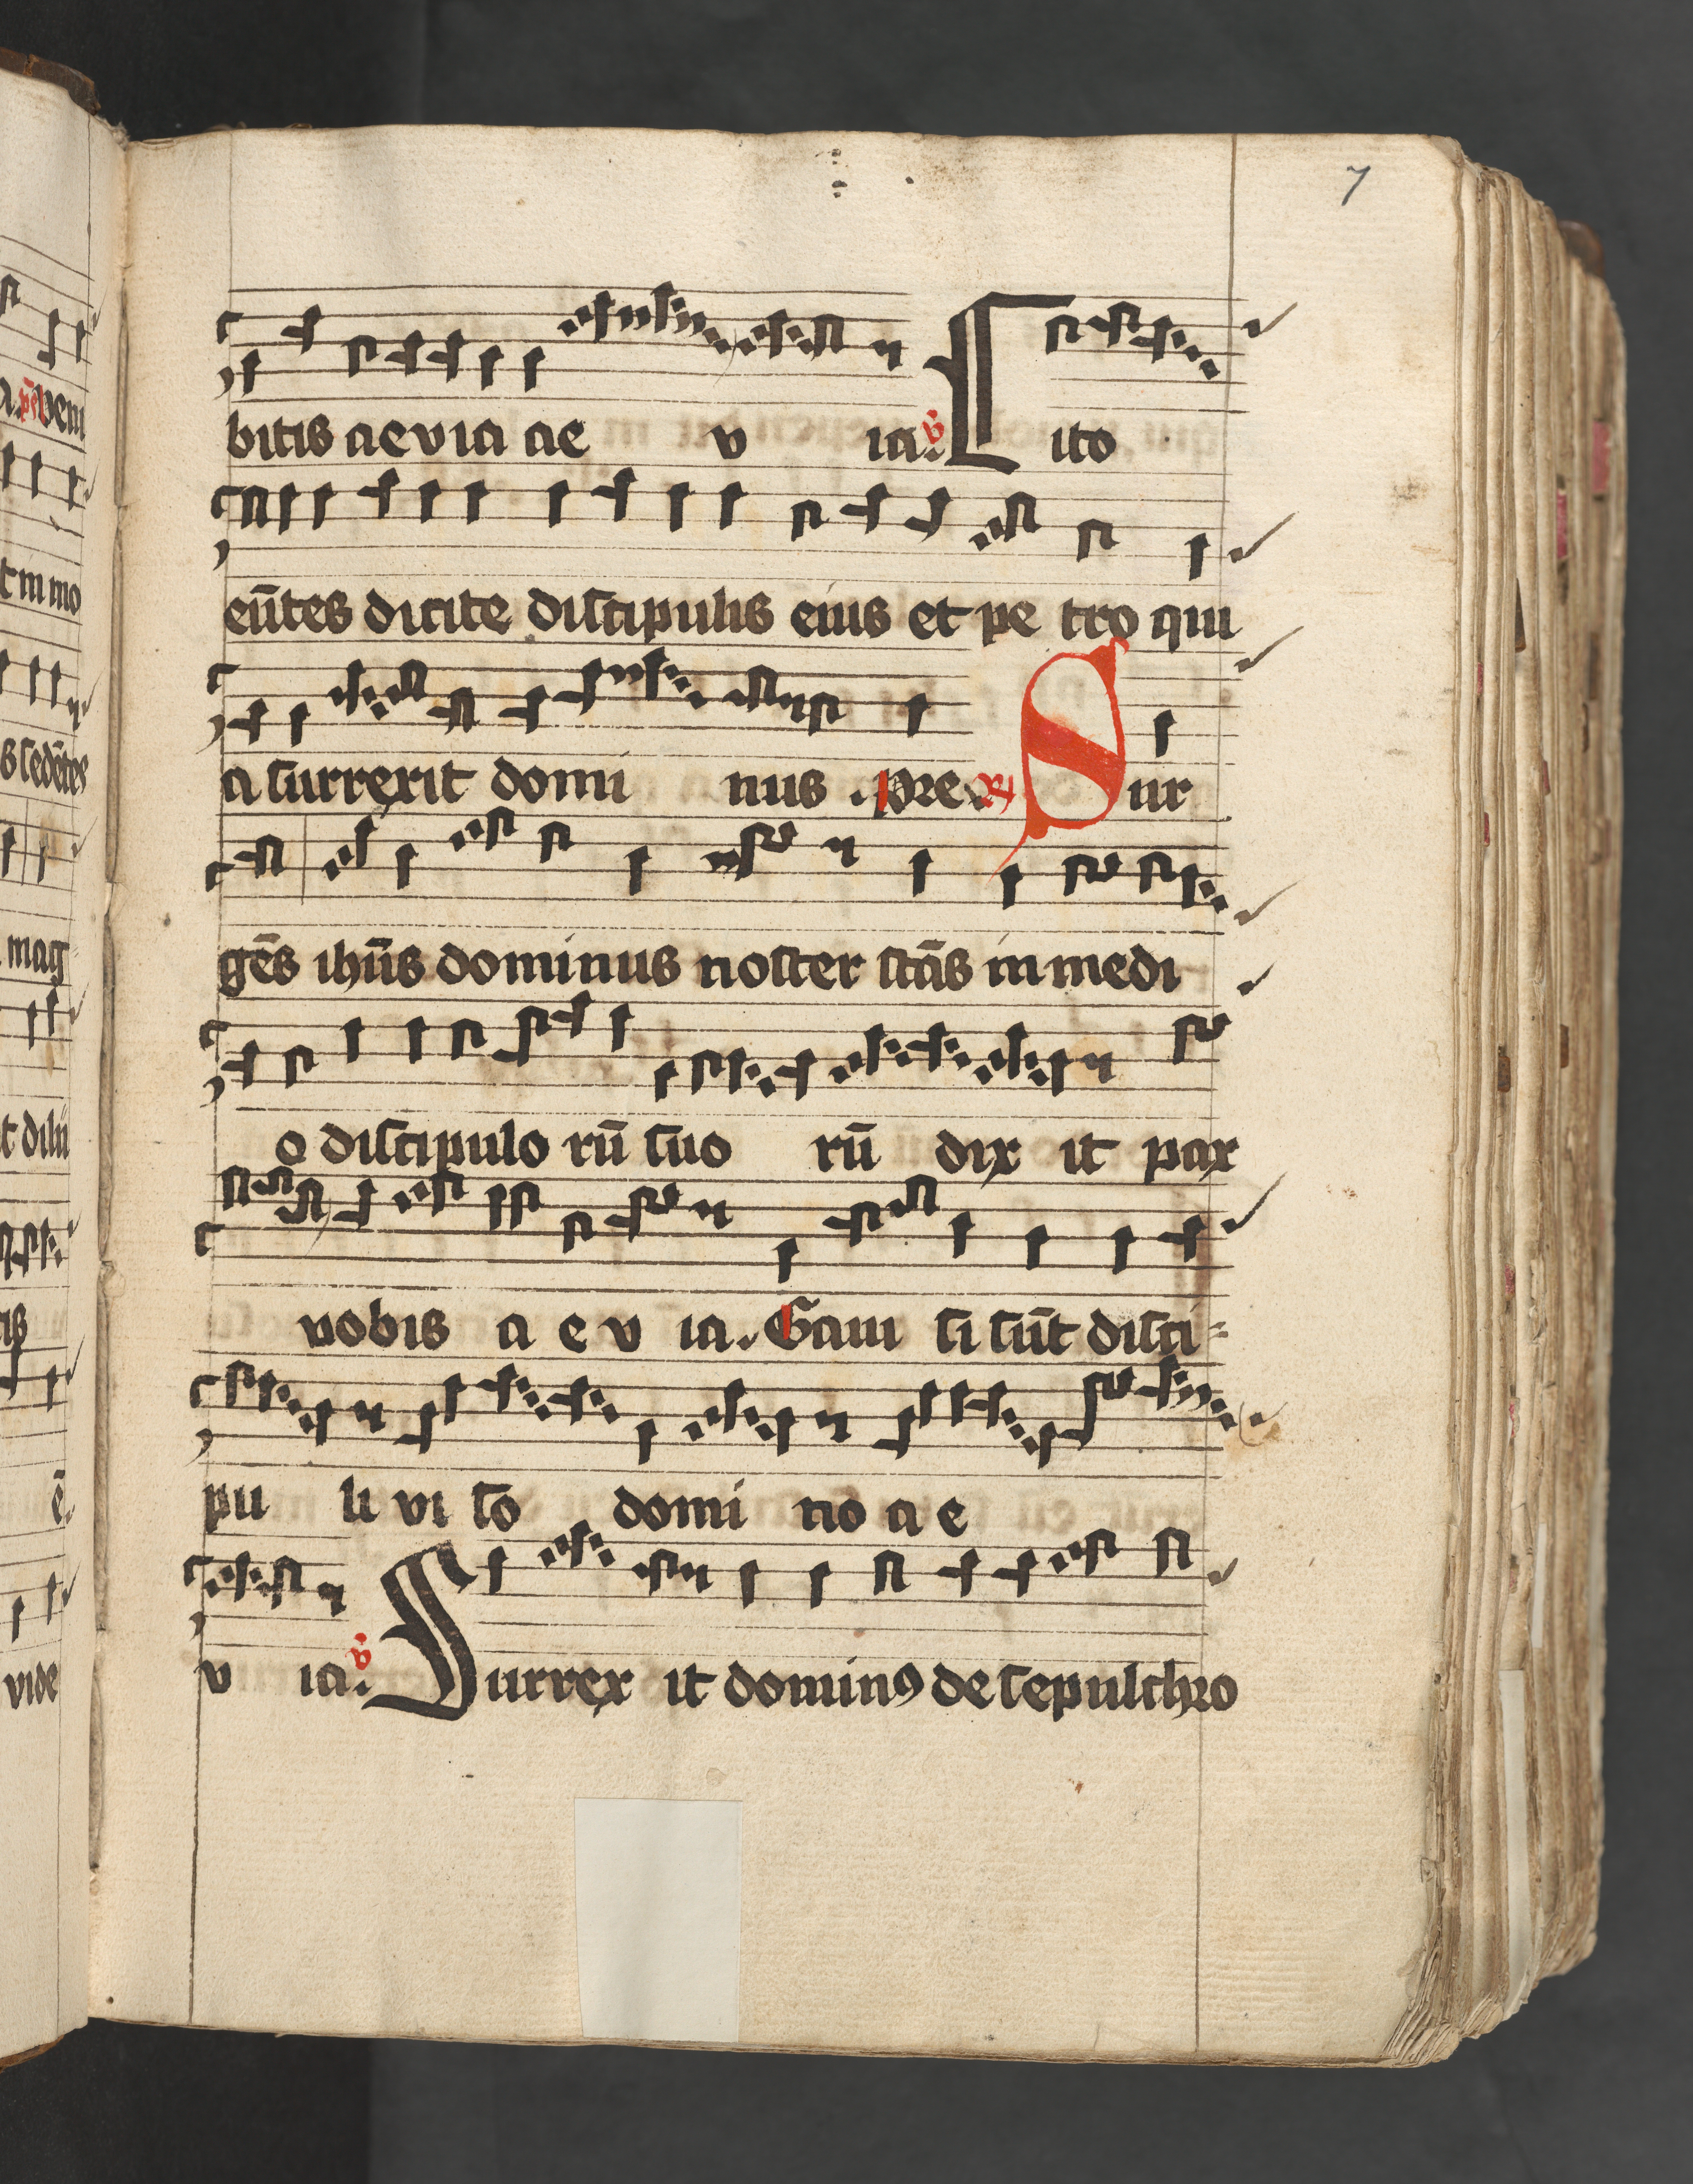 7
bitis aevia ae v ia. v̓ Cito
eūtes dicite discipulis eius et pe tro qui
a surrexit domi nus . Pre. R̵ Sur
gēs ihūs dominus noster stās in medi
o discipulo rū suo rū dix it pax
vobis a e v ia. Gaui si sūt disci=
pu li vi so domi no a e
v ia. v̓ Surrex it domin⁹ de sepulchro
a. pē Veni
t in mo
s sedētes
mag
t dilū
tis
ē.
vide